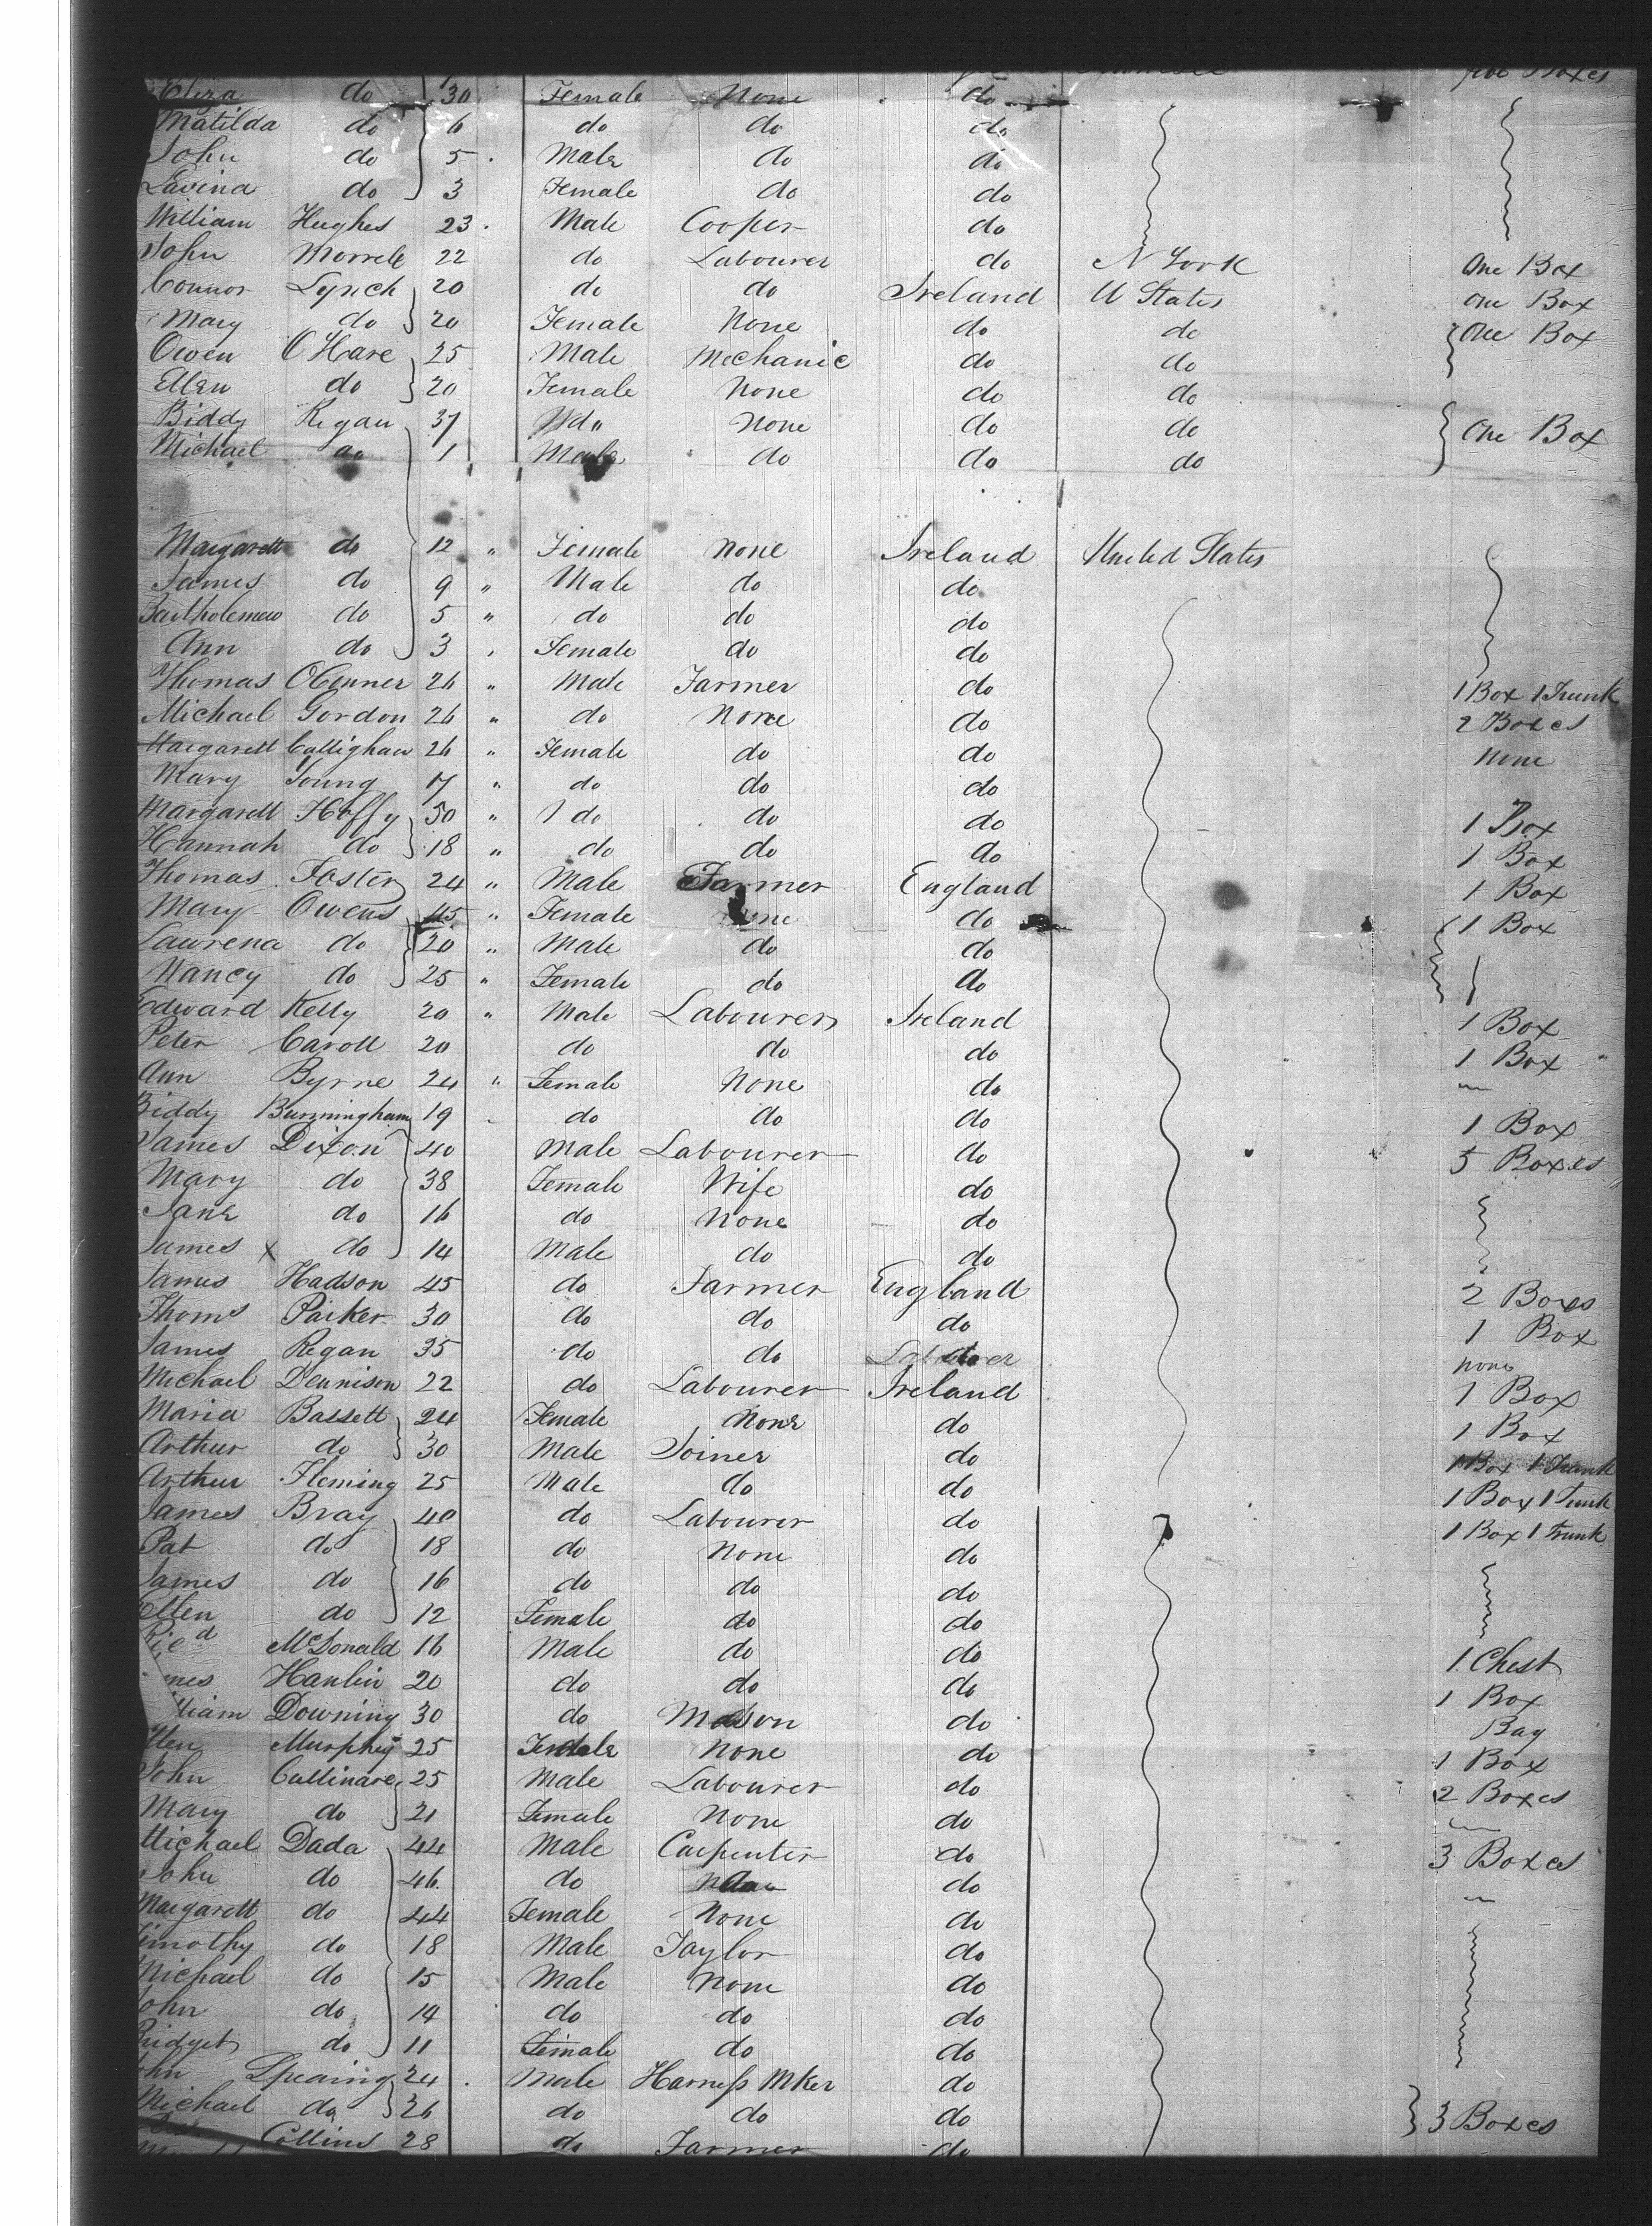 Eliza do 30 Female None do
Matilda do 6 do do do
John do 5 Male do do
Lavina do 3 Female do do
William Hughes 23 Male Cooper do
John Morrele 22 do Labourer do N York One Box
Connor Lynch 20 do do Ireland U States One Box
Mary do 20 Female None do do One Box
Owen O Hare 25 Male Mechanic do do
Ellen do 20 Female None do do
Biddy Regan 37 Wd " None do do One Box
Michael do 1 Male do do do
Margarett do 12 " Female None Ireland United States
James do 9 " Male do do
Bartholemew do 5 " do do do
Ann do 3 " Female do do
Thomas OConner 26 " Male Farmer do 1 Box 1 Trunk
Michael Gordon 26 " do None do 2 Boxes
Margarett Callighan 26 " Female do do None
Mary Young 17 " do do do
Margarett Hoffy 50 " do do do 1 Box
Hannah do 18 " do do do 1 Box
Thomas Foster 24 " Male Farmer England 1 Box
Mary Owens 45 " Female None do 1 Box
Laurena do 20 " Male do do
Nancy do 25 " Female do do
Edward Kelly 20 " Male Labourer Ireland 1 Box
Peter Caroll 20 do do do 1 Box
Ann Byrne 24 " Female None do
Biddy Burmingham 19 do do do 1 Box
James Dixon 40 Male Labourer do 5 Boxes
Mary do 38 Female Wife do
Jane do 16 do None do
James x do 14 Male do do
James Hadson 45 do Farmer England 2 Boxes
Thoms Parker 30 do do do 1 Box
James Regan 35 do do do none
Michael Dennison 22 do Labourer Ireland 1 Box
Maria Bassett 24 Female None do 1 Box
Arthur do 30 Male Joiner do 1 Box 1 Trunk
Arthur Fleming 25 Male do do 1 Box 1 Trunk
James Bray 40 do Labourer do 1 Box 1 Trunk
Pat do 18 do None do
James do 16 do do do
Ellen do 12 Female do do
McDonald 16 Male do do 1 Chest
Hanlin 20 do do do 1 Box
Downing 30 do Mason do Bag
Murphey 25 Female None do 1 Box
John Cullinare 25 Male Labourer do 2 Boxes
Mary do 21 Female None do
Michael Dada 44 Male Carpenter do 3 Boxes
John do 46 do do
Margarett do 44 Female None do
Timothy do 18 Male Taylor do
Michael do 15 Male None do
John do 14 do do do
Bridget do 11 Female do do
John Spearing 24 Male Harness Mker do
Michael do 26 do do do 3 Boxes
Collins 28 do Farmer do